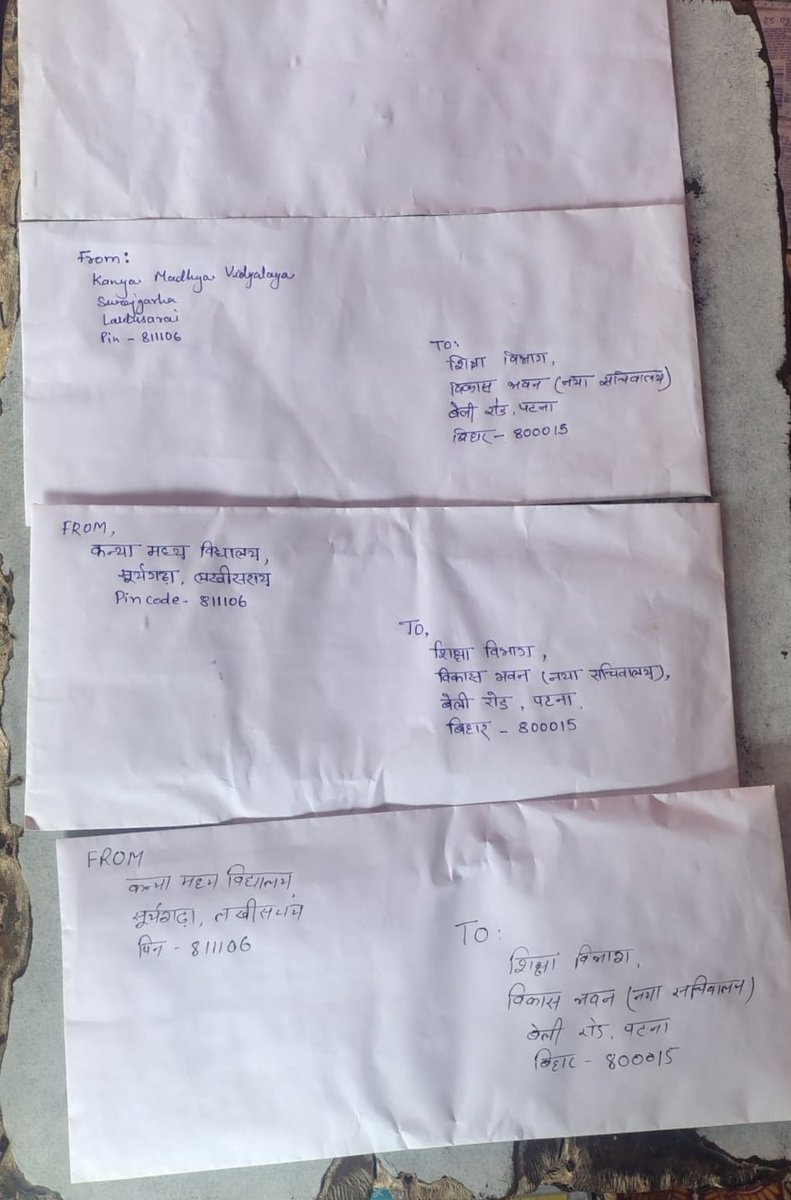 From:
Kanya Madhya Vidyalaya
Surajgarha
Lakhisarai
Pin - 811106
TO:
शिक्षा विभाग,
विकास भवन (नया सचिवालय)
बेली रोड, पटना
बिहार - 800015
FROM,
कन्या मध्य विद्यालय,
सूर्यगढ़ा, लखीसराय
Pincode - 811106
TO,
शिक्षा विभाग,
विकास भवन (नया सचिवालय),
बेली रोड, पटना,
बिहार - 800015
FROM
कन्या मध्य विद्यालय
सूर्यगढ़ा, लखीसराय
पिन - 811106
TO:
शिक्षा विभाग,
विकास भवन (नया सचिवालय)
बेली रोड, पटना
बिहार - 800015